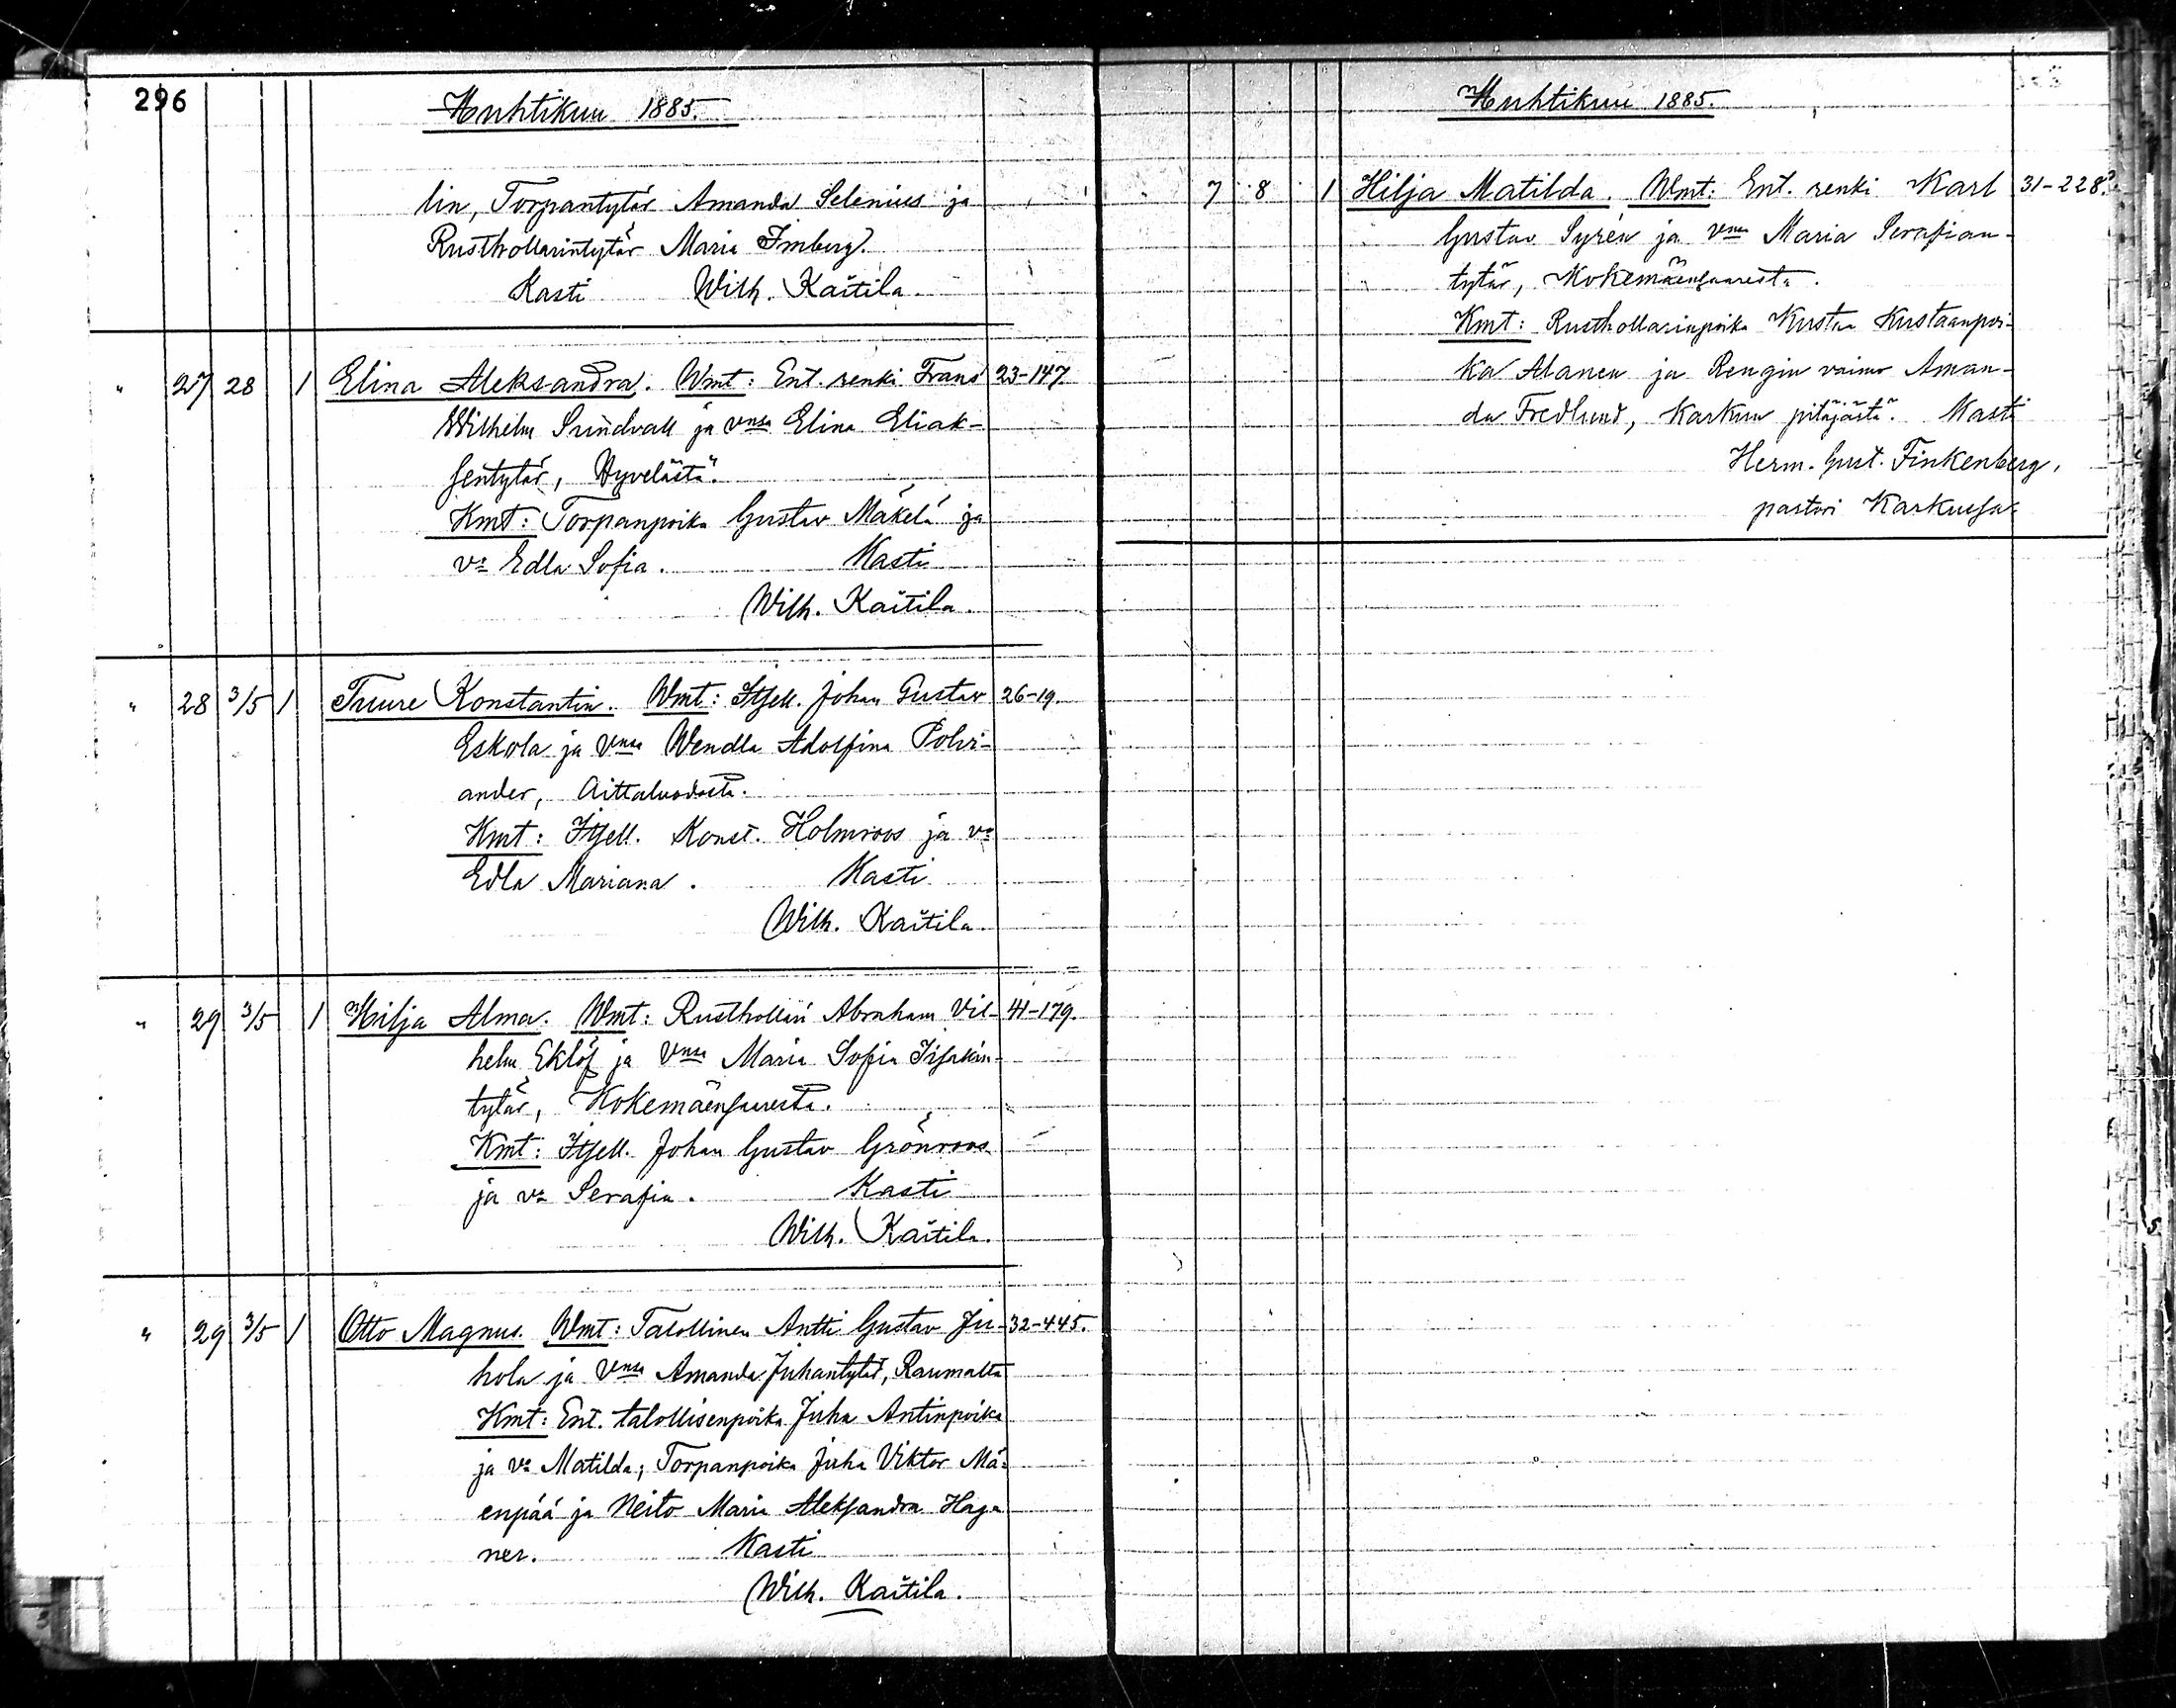 296
Huhtikuu 1885.
lin, Torpantytär Amanda Selenius ja
Rusthollarintytär Maria Imberg.
Kasti Wilh. Kaitila.
" 27 28 1 Elina Aleksandra. Wmt: Ent. renki Frans 23-147.
Wilhelm Sundvall ja vmsa Elina Eliak-
sentytär, Hyvelästä.
Kmt: Torpanpoika Gustav Mäkelä ja
va Edla Sofia. Kasti
Wilh. Kaitila.
" 28 3/5 1 Tuure Konstantin. Wmt: Itsell. Johan Gustav 26-19.
Eskola ja vmsa Wendla Adolfina Polvi-
ander, Aittaluodosta.
Kmt: Itsell. Konst. Holmroos ja va
Edla Mariana. Kasti
Wilh. Kaitila.
" 29 3/5 1 Hilja Alma. Wmt: Rusthollari Abraham Vil- 41-179.
helm Eklöf ja vmsa Maria Sofia Iisakin-
tytär, Kokemäensaaresta.
Kmt: Itsell. Johan Gustav Grönroos
ja va Serafia. Kasti
Wilh. Kaitila.
" 29 3/5 1 Otto Magnus. Wmt: Talollinen Antti Gustav Ju- 32-445.
hola ja vmsa Amanda Juhantytär, Raumalta
Kmt: Ent. talollisenpoika Juha Antinpoika
ja va Matilda; Torpanpoika Juha Viktor Mä-
enpää ja Neito Maria Aleksandra Hage
ner. Kasti
Wilh. Kaitila.
Huhtikuu 1885.
7 8 1 Hilja Matilda. Wmt: Ent. renki Karl 31-228.
Gustav Syrén ja vmsa Maria Serafian-
tytär, Kokemäensaaresta.
Kmt: Rusthollarinpoika Kustaa Kustaanpoi-
ka Alanen ja Rengin vaimo Aman-
da Fredlund, Karkun pitäjästä. Kasti
Herm. Gust. Finkenberg,
pastori Karkussa.